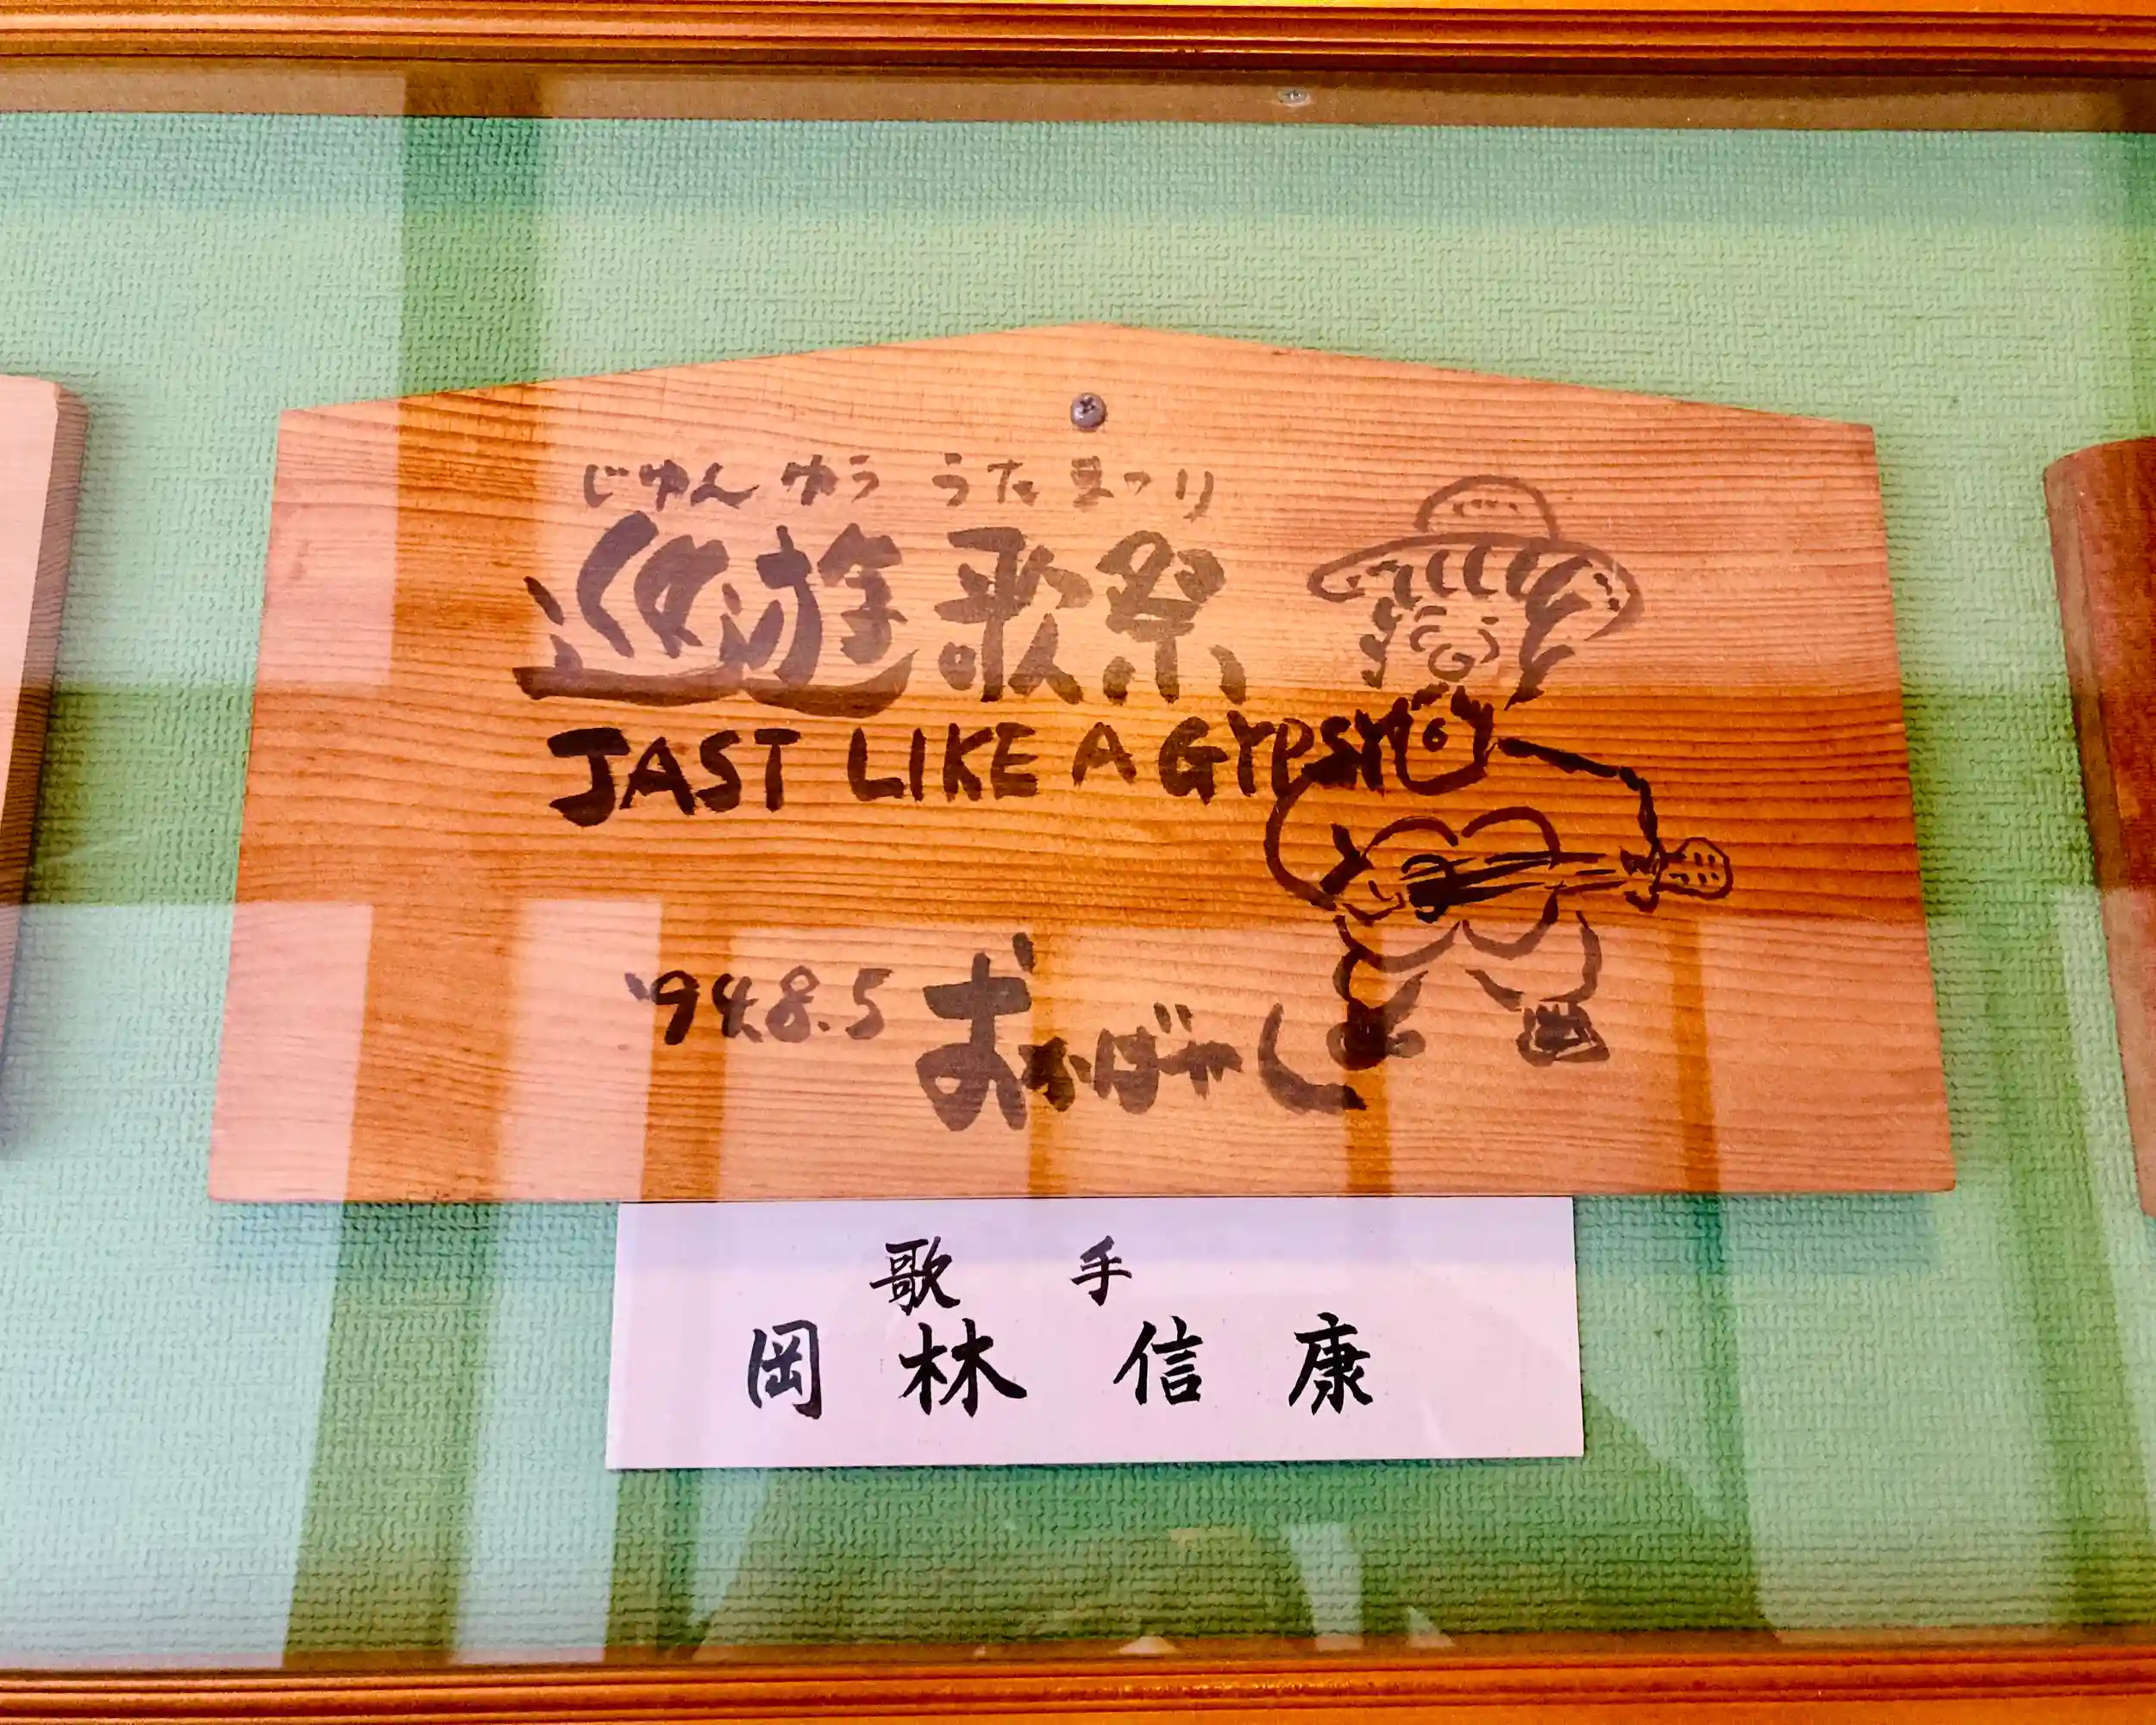 じゅん ゆう うた まつり
巡遊歌祭
JAST LIKE A GYPSY
'94.8.5 おかばやし
歌 手
岡 林 信 康